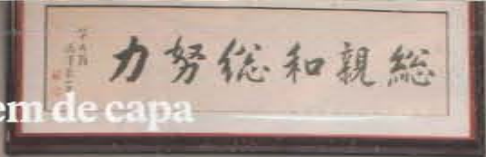 総親和総努力
em de capa